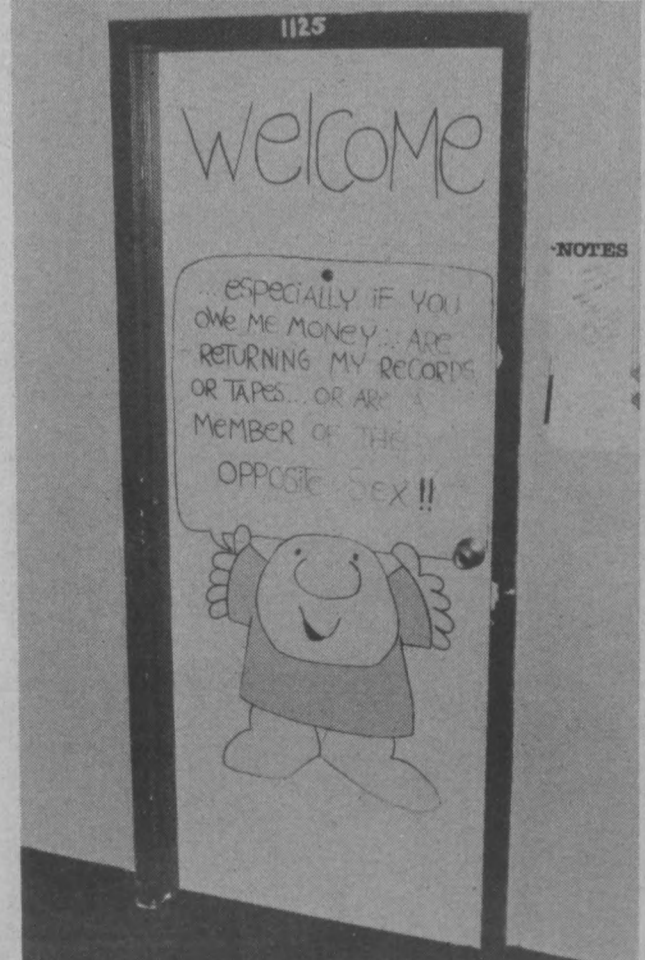 1125
WelCoMe
... esPeCiALLY iF YOU
OWe Me MONeY... ARe
ReTURNiNG MY ReCORDS
OR TAPes... OR ARe A
MeMBER OF THe
OPPOSiTe Sex!!
NOTES